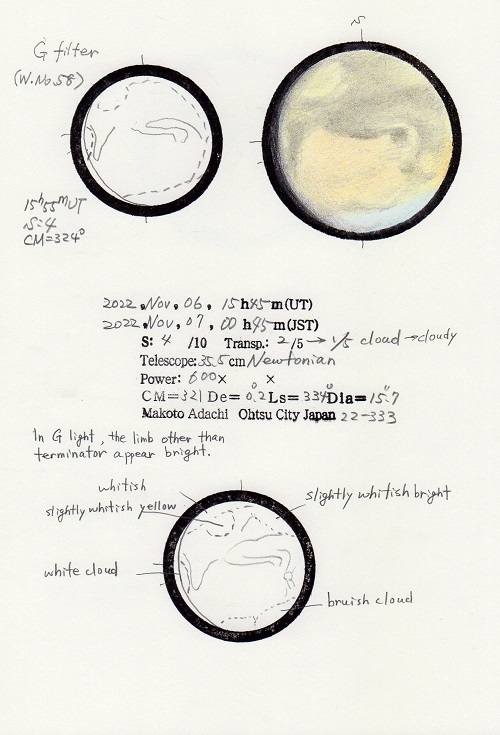 S
G filter
(W.No.58)
15h55m UT
S=4
CM=324°
2022, Nov, 06, 15h45m(UT)
2022, Nov, 07, 00h45m(JST)
S: 4 /10 Transp.: 2/5 → 1/5 cloud → cloudy
Telescope: 35.5cm Newtonian
Power: 600× ×
CM=321 De=0.2° Ls=334° Dia=15".7
Makoto Adachi Ohtsu City Japan 22-333
In G light, the limb other than
terminator appear bright.
whitish
slightly whitish yellow
slightly whitish bright
white cloud
bruish cloud